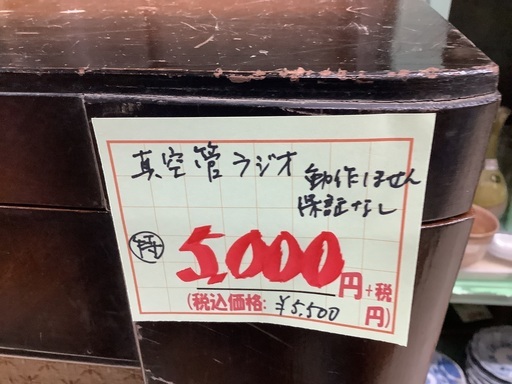 真空管ラジオ
動作しません
保証なし
特
5,000円+税
(税込価格: ¥5,500円)